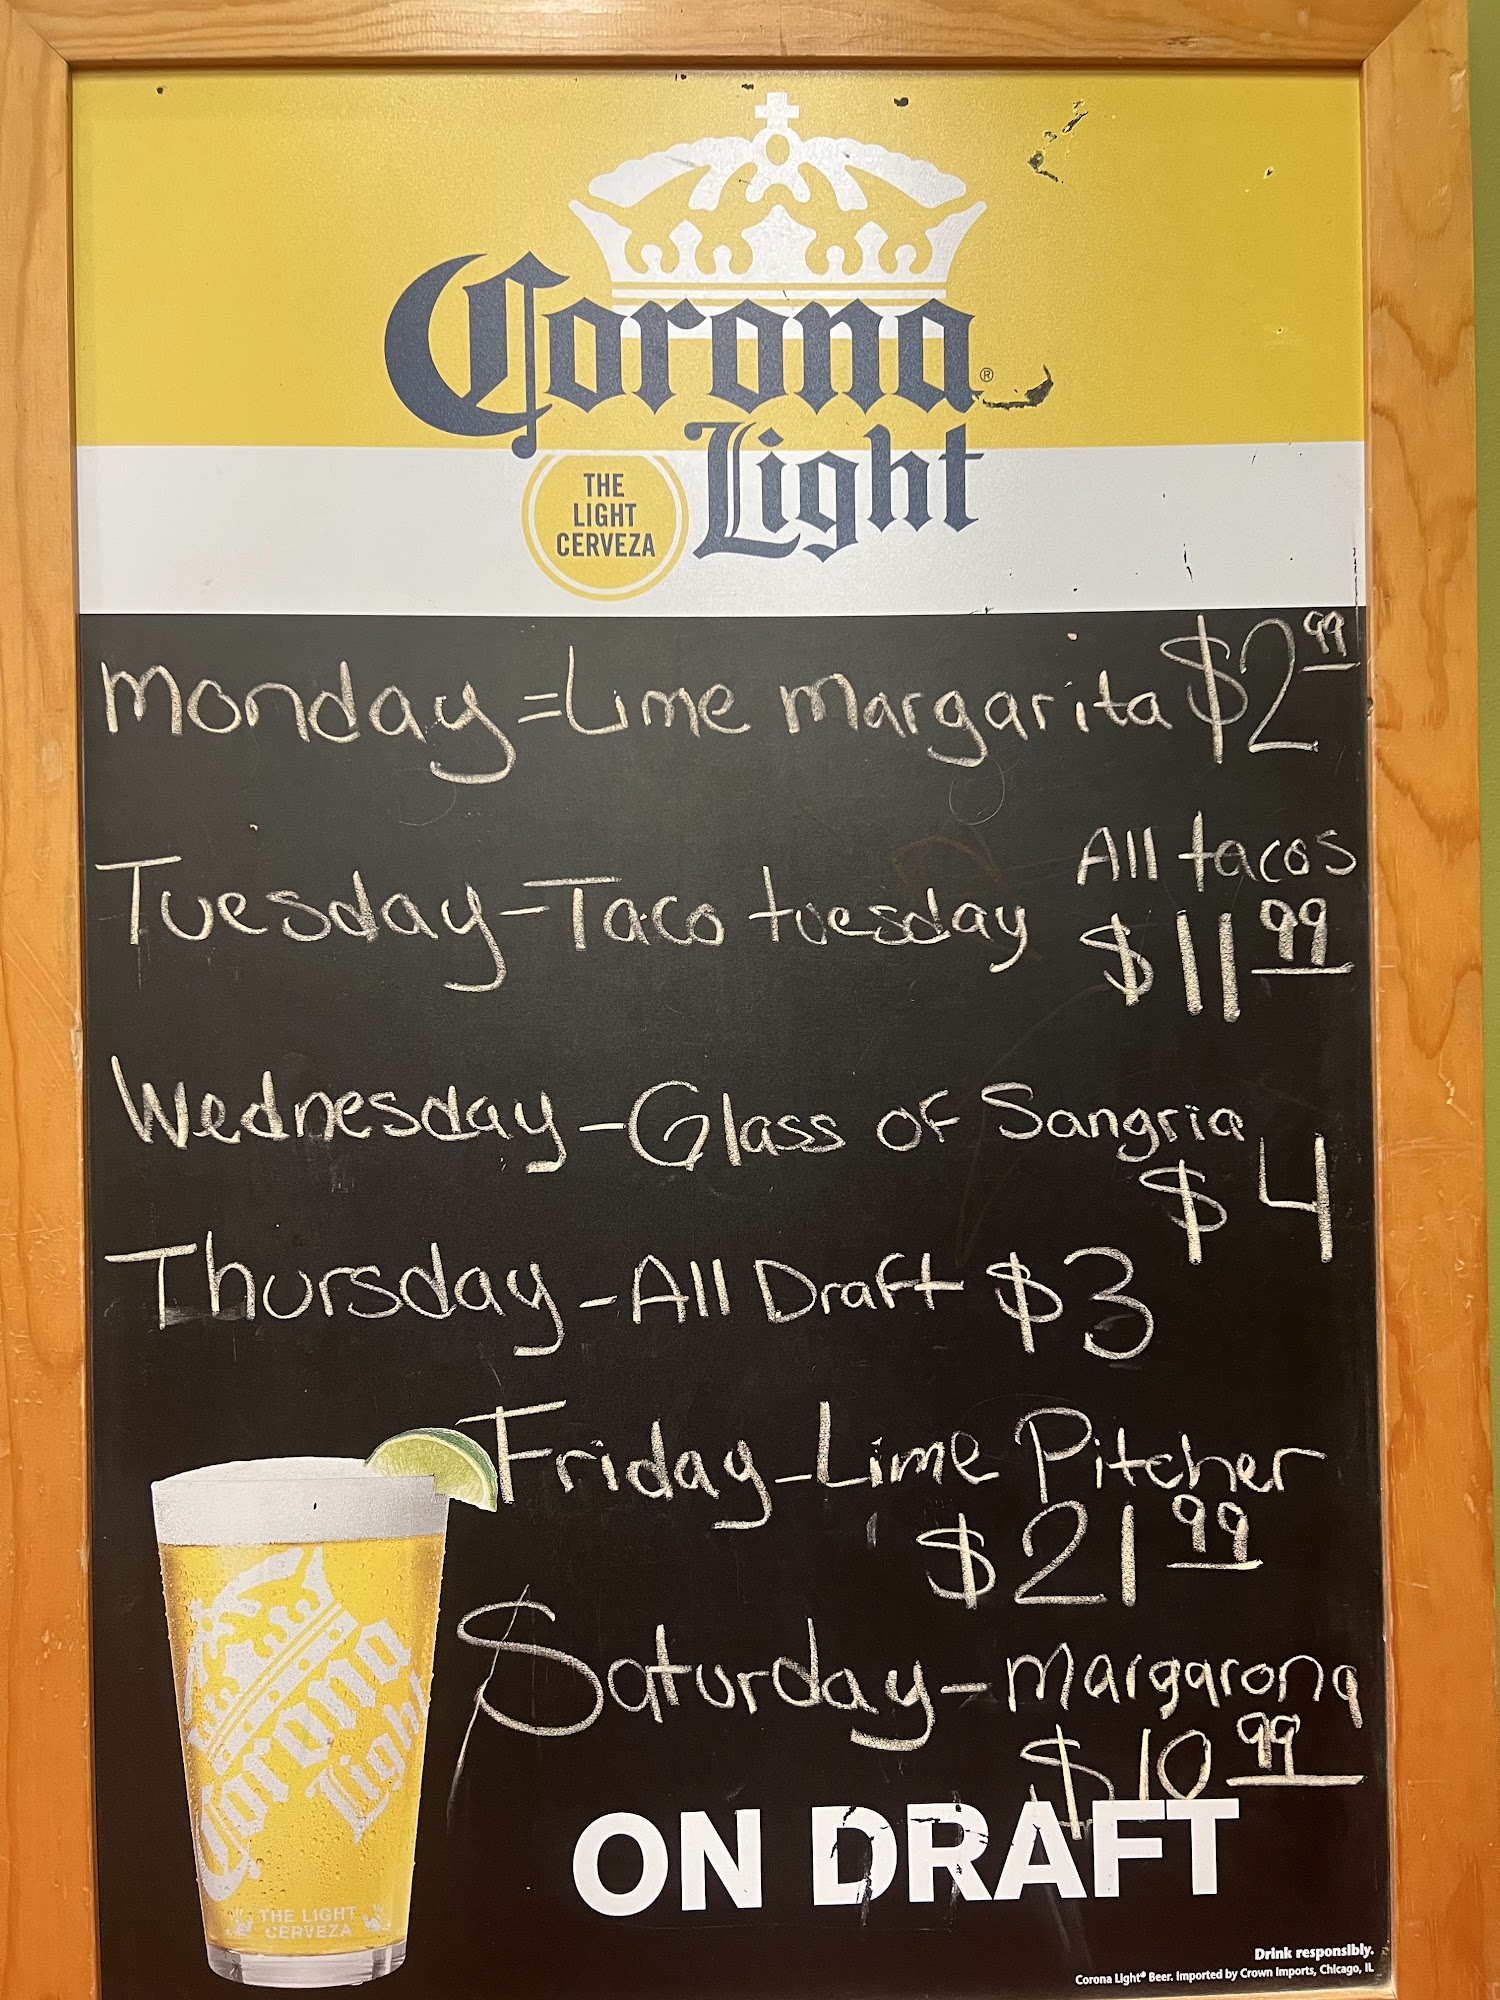 Corona®
Light
THE
LIGHT
CERVEZA
Monday=Lime margarita $2.99
Tuesday-Taco tuesday All tacos
$11.99
Wednesday-Glass of Sangria
$4
Thursday-All Draft $3
Friday-Lime Pitcher
$21.99
Saturday-margarona
$10.99
Corona
Light
THE LIGHT
CERVEZA
ON DRAFT
Drink responsibly.
Corona Light® Beer. Imported by Crown Imports, Chicago, IL